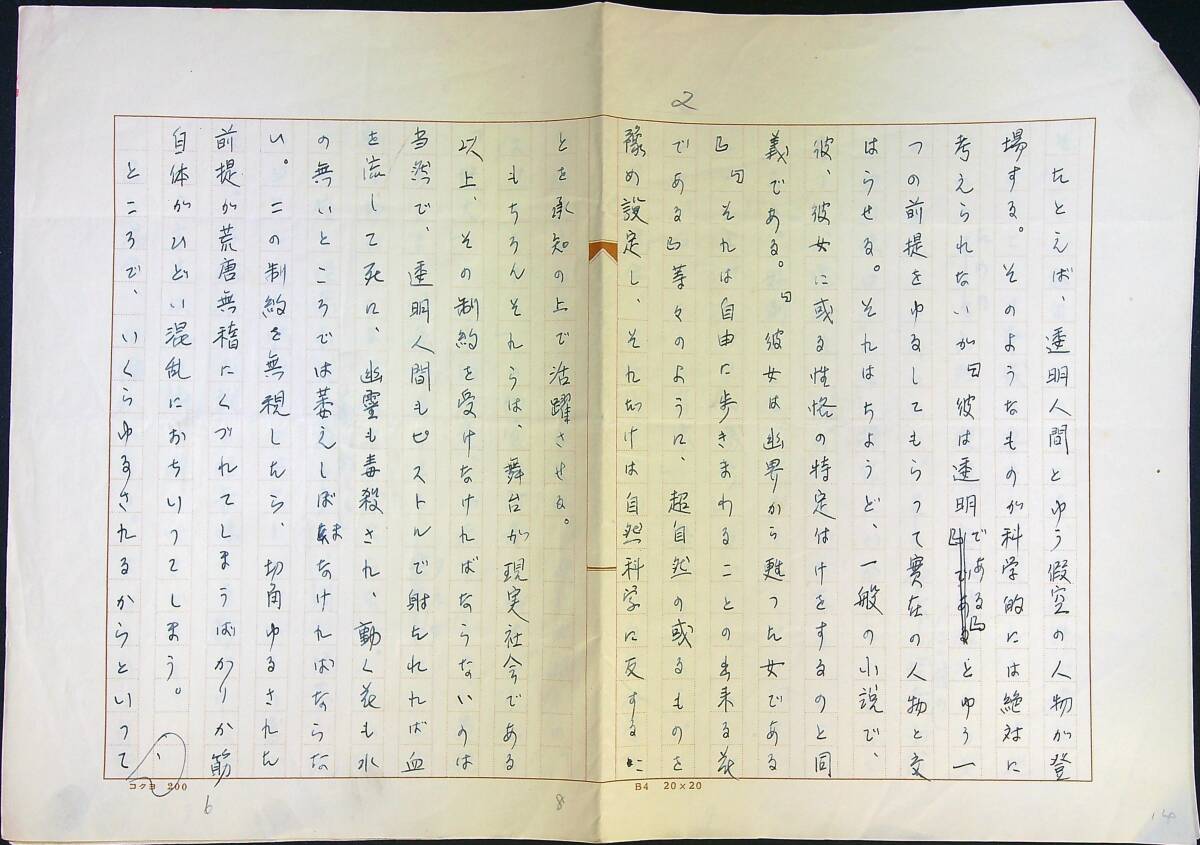 2
たとえば、透明人間とゆう假空の人物が登
場する。そのようなものが科学的には絶対に
考えられないが『彼は透明である』とゆう一
つの前提をゆるしてもらって實在の人物と交
はらせる。それはちようど、一般の小説で、
彼、彼女に或る性格の特定はけをするのと同
義である。『彼女は幽界から甦つた女である
』『それは自由に歩きまわることの出来る花
である』等々のように、超自然の或るものを
豫め設定し、それだけは自然科学に反するこ
とを承知の上で活躍させる。
もちろんそれらは、舞台が現実社会である
以上、その制約を受けなければならないのは
当然で、透明人間もピストルで射たれれば血
を流して死に、幽霊も毒殺され、動く花も水
の無いところでは萎えしぼまなければならな
い。この制約を無視したら、切角ゆるされた
前提が荒唐無稽にくづれてしまうばかりか筋
自体がひどい混乱におちいつてしまう。
ところで、いくらゆるされるからといって
、
コクヨ 200
B4 20×20
6
8
14